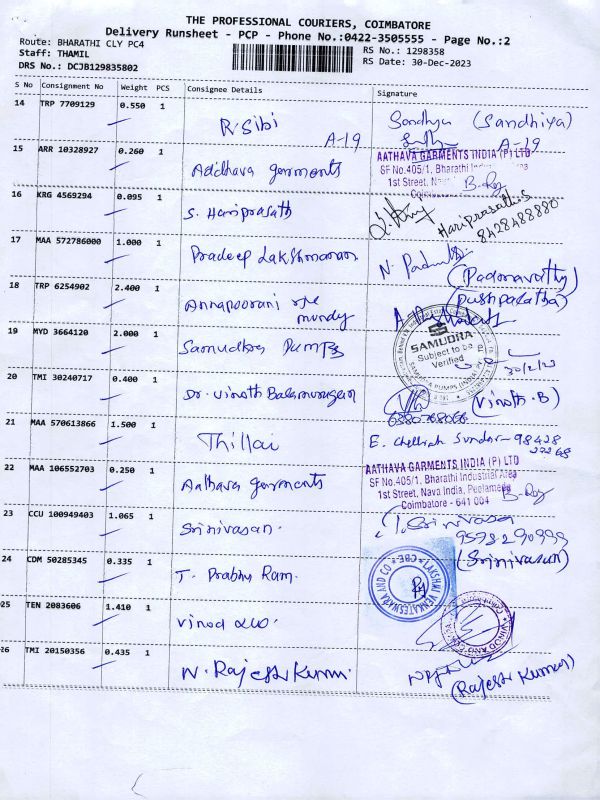 THE PROFESSIONAL COURIERS, COIMBATORE
Delivery Runsheet - PCP - Phone No.:0422-3505555 - Page No.:2
Route: BHARATHI CLY PC4
RS No.: 1298358
Staff: THAMIL
RS Date: 30-Dec-2023
DRS No.: DCJB129835802
S No Consignment No Weight PCS Consignee Details Signature
14 TRP 7709129 0.550 1
R. Sibi
A-19
Sandhya (Sandhiya)
A-19
15 ARR 10328927 0.260 1
Aadhava garments
AATHAVA GARMENTS INDIA (P) LTD
SF No.405/1, Bharathi Area
1st Street,
16 KRG 4569294 0.095 1
S. Hariprasath
Hariprasath.S
8428488880
17 MAA 572786000 1.000 1
Pradeep Lakshmanan
N. Padma
(Padmavathy)
18 TRP 6254902 2.400 1
Annapoorani
mundy
(Pushpalatha)
19 MYD 3664120 2.000 1
Samudhra Pumps
SAMUDRA
Subject to be
Verified
30/12/23
20 TMI 30240717 0.400 1
Dr. Vinoth Balamurugan
(Vinoth.B)
21 MAA 570613866 1.500 1
Thillai
E. Chelliah Sundar - 98428
22 MAA 106552703 0.250 1
Aathava garments
AATHAVA GARMENTS INDIA (P) LTD
SF No.405/1, Bharathi Industrial Area
1st Street, Nava India, Peelamedu
Coimbatore - 641 004
23 CCU 100949403 1.065 1
Srinivasan.
T. Srinivasa
9578290999
(Srinivasan)
24 CDM 50285345 0.335 1
T. Prabhu Ram.
LAKSHMI VENKATESWARA AND CO CBE
25 TEN 2083606 1.410 1
Vinod
VINOD AND
26 TMI 20150356 0.435 1
N. Rajesh Kumar
(Rajesh Kumar)